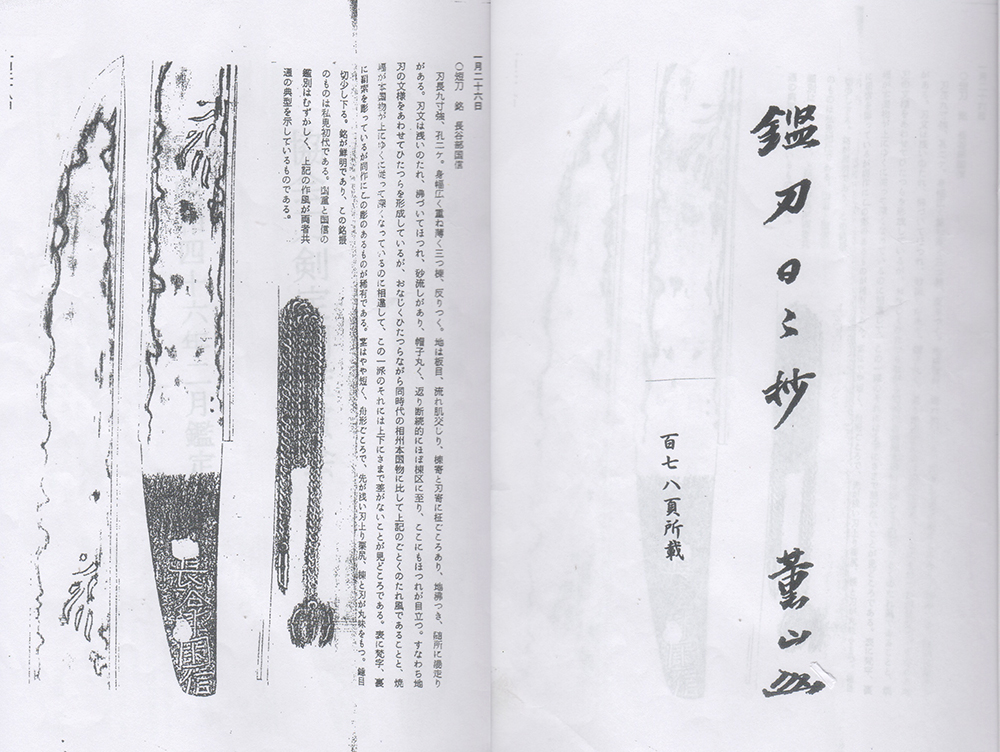 鑑刀日々抄 薫山
百七八頁所載
一月二十六日
○短刀 銘 長谷部国信
刃長九寸強、孔二ケ。身幅広く重ね薄く三つ棟、反りつく。地は板目、流れ肌交じり、棟寄と刃寄に柾ごころあり、地沸つき、随所に湯走り
がある。刃文は浅いのたれ、沸づいてほつれ、砂流しがあり、帽子丸く、返り断続的にほぼ棟区に至り、ここにもほつれが目立つ。すなわち地
刃の文様をあわせてひたつらを形成しているが、おなじくひたつらながら同時代の相州本国物に比して上記のごとくのたれ風であることと、焼
幅が本国物が上にゆくに従って深くなっているのに相違して、この一派のそれには上下にさまで差がないことが見どころである。表に梵字、裏
に羂索を彫っているが同作にこの彫のあるものが稀有である。茎はやや短く、舟形ごころで、先が浅い刃上り栗尻、棟と刃が丸味をもつ。鑢目
切少し下る。銘が鮮明であり、この銘振
のものは私見初代である。国重と国信の
鑑別はむずかしく、上記の作風が両者共
通の典型を示しているものである。
長谷部国信